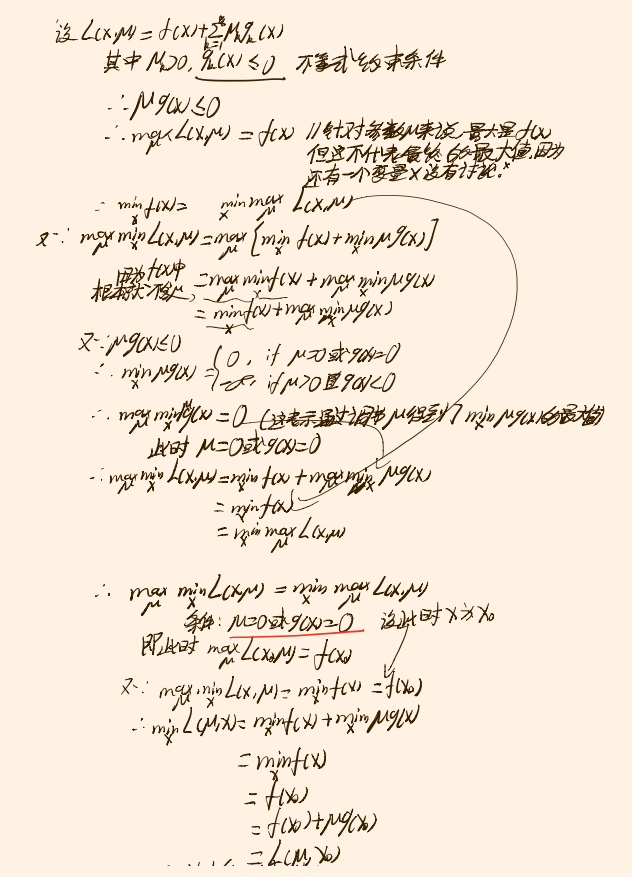 设 L(x,μ) = f(x)+∑_{k=1}^{n} μ_k g_k(x)
其中 μ_k≥0, g_k(x) ≤ 0 不等式约束条件
∴ μg(x) ≤ 0
∴ max_μ L(x,μ) = f(x) //针对参数μ来说,最大是f(x)
但这不代表最终的最大值,因为
还有一个变量x没有讨论.*
∴ min_x f(x) = min_x max_μ L(x,μ)
又∵ max_μ min_x L(x,μ) = max_μ [min_x f(x) + min_x μg(x)]
因为f(x)中
根本就不含μ = max_μ min_x f(x) + max_μ min_x μg(x)
= min_x f(x) + max_μ min_x μg(x)
又∵ μg(x) ≤ 0
∴ min_x μg(x) = { 0, if μ=0 或 g(x)=0
-∞, if μ>0 且 g(x)<0
∴ max_μ min_x μg(x) = 0 (这表示通过调节 μ 得到了 min_x μg(x) 的最大值)
此时 μ=0 或 g(x)=0
∴ max_μ min_x L(x,μ) = min_x f(x) + max_μ min_x μg(x)
= min_x f(x)
= min_x max_μ L(x,μ)
∴ max_μ min_x L(x,μ) = min_x max_μ L(x,μ)
条件: μ=0 或 g(x)=0 设此时 x 为 x₀
即此时 max_μ L(x₀,μ) = f(x₀)
又∵ max_μ min_x L(x,μ) = min_x f(x) = f(x₀)
∴ min_x L(μ,x) = min_x f(x) + min_x μg(x)
= min_x f(x)
= f(x₀)
= f(x₀)+μg(x₀)
= L(μ,x₀)